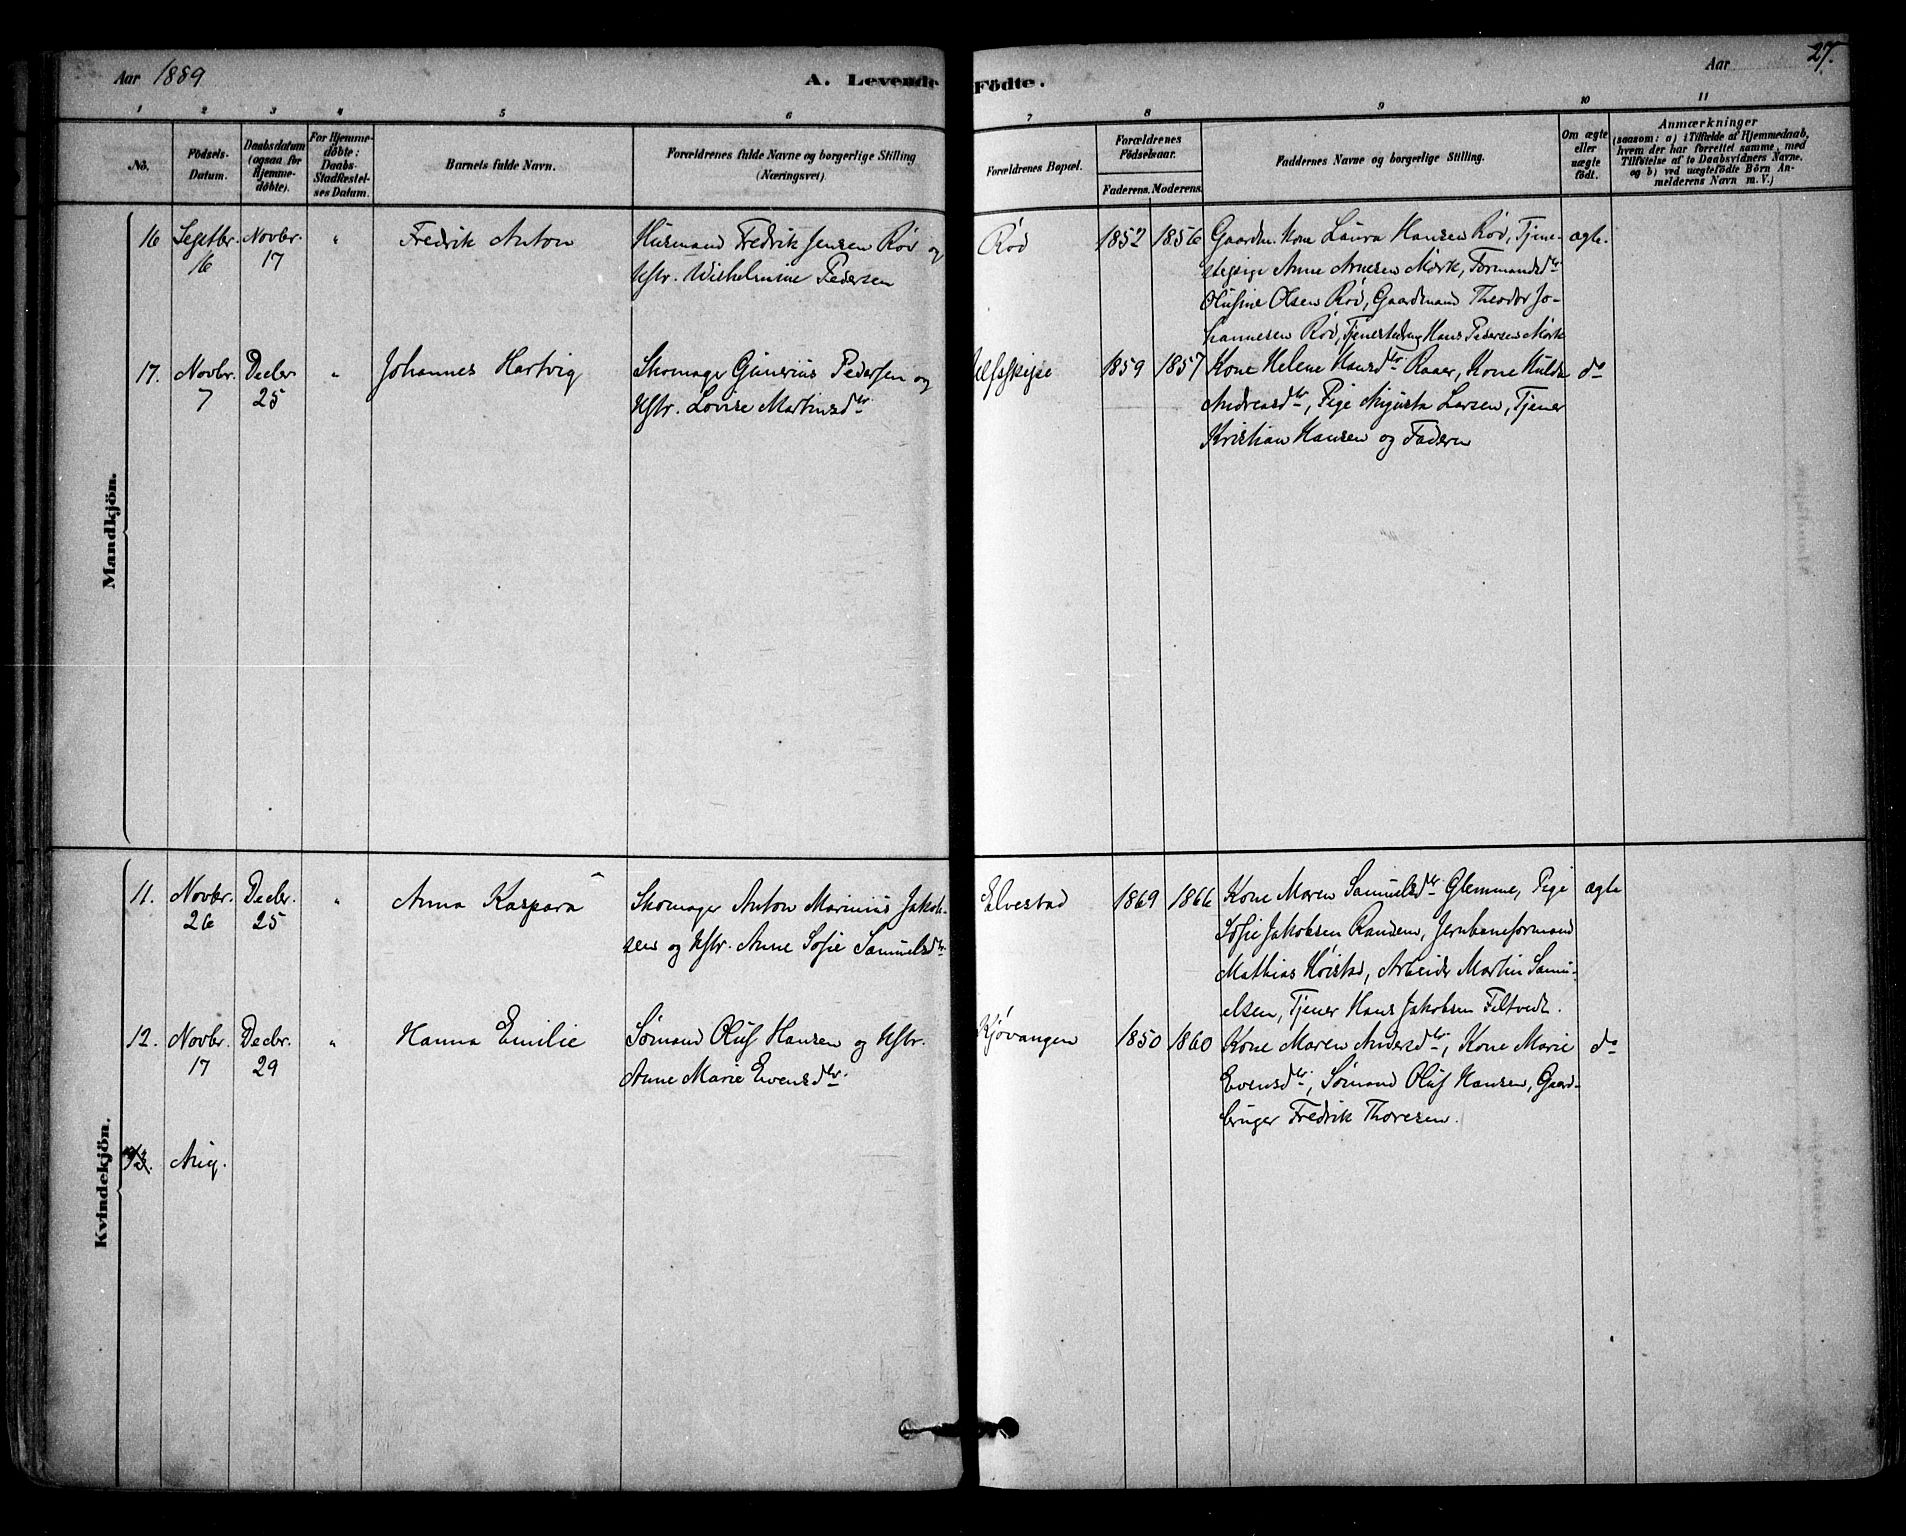 Aar 1889
A. Levende Födte.
Aar
27.
1 2 3 4 5 6 7 8 9 10 11
No.
Födsels-
Datum.
Daabsdatum
(ogsaa for
Hjemme-
döbte).
For Hjemme-
döbte:
Daabs-
Stadfæstel-
ses Datum.
Barnets fulde Navn.
Forældrenes fulde Navne og borgerlige Stilling
(Næringsvei).
Forældrenes Bopæl.
Forældrenes
Födselsaar.
Faderens. Moderens.
Faddernes Navne og borgerlige Stilling.
Om ægte
eller
uægte
födt.
Anmærkninger
(saasom: a) i Tilfælde af Hjemmedaab,
hvem der har forrettet samme, med
Tilföielse af to Daabsvidners Navne,
og b) ved uægtefödte Börn An-
melderens Navn m. V.)
Mandkjön.
16 Septbr. 16
Novbr. 17
"
Fredrik Anton
Husmand Fredrik Jensen Rød og
Hstr. Wilhelmine Pedersen
Rød
1852 1856
Gaardm. Kone Laura Hansen Rød, Tjene-
stepige Anne Arnesen Mørk, Formandsdtr
Olufine Olsen Rød, Gaardmand Theodor Jo-
hannesen Rød, Tjenestedreng Hans Pedersen Mørk
ægte.
17. Novbr. 7
Decbr 25
"
Johannes Hartvig
Skomager Gunerius Pedersen og
Hstr. Lovise Martinsdtr
1859 1857
Kone Helene Hansdtr Raaer, Kone Hulda
Andreasdtr, Pige Augusta Larsen, Tjener
Kristian Hansen og Faderen
do
Kvindekjön.
11. Novbr. 26
Decbr. 25
"
Anna Kaspara
Skomager Anton Marinius Jakob-
sen og Hstr. Anne Sofie Samuelsdtr
Elvestad
1869 1866
Kone Maren Samuelsdtr Glemme, Pige
Sofie Jakobsen Randem, Jernbaneformand
Mathias Høistad, Arbeider Martin Samu-
elsen, Tjener Hans Jakobsen Filtvedt.
ægte
12. Novbr. 17
Decbr. 29
"
Hanna Emilie
Sømand Oluf Hansen og Hstr.
Anne Marie Evensdtr
Kjøvangen
1850 1860
Kone Maren Andersdtr, Kone Marie
Evensdtr, Sømand Oluf Hansen, Gaard-
bruger Fredrik Thoresen.
do
13. Aug.